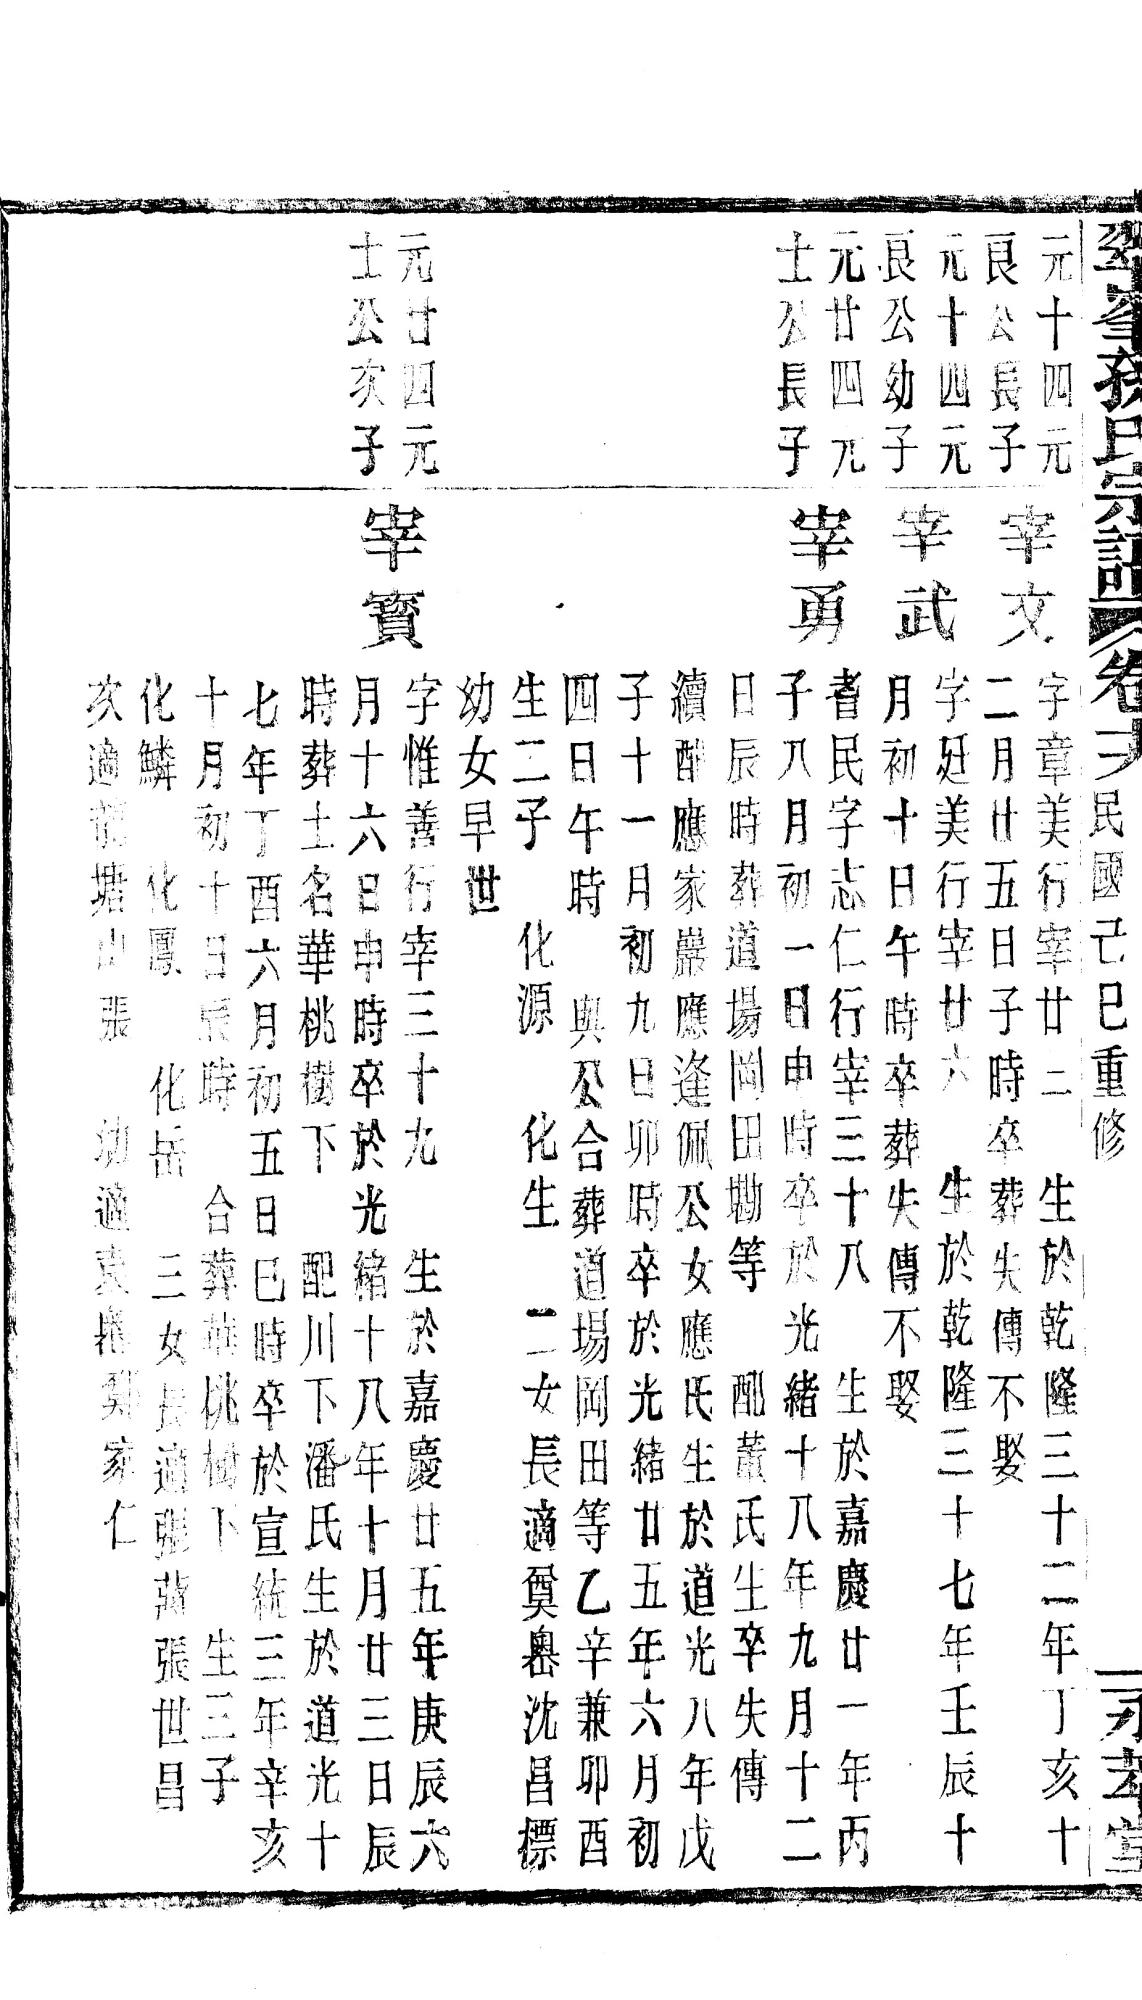 峯孫氏宗譜 卷 民國己巳重修 一 永孝堂
元十四元
良公長子
宰文
字章美行宰廿二 生於乾隆三十二年丁亥十
二月廿五日子時卒葬失傳不娶
元十四元
良公幼子
宰武
字廷美行宰廿六 生於乾隆三十七年壬辰十
月初十日午時卒葬失傳不娶
元廿四元
士公長子
宰勇
耆民字志仁行宰三十八 生於嘉慶廿一年丙
子八月初一日申時卒於光緒十八年九月十二
日辰時葬道場岡田塝等 配董氏生卒失傳
續配應家巖應逢佩公女應氏生於道光八年戊
子十一月初九日卯時卒於光緒廿五年六月初
四日午時 與公合葬道場岡田等乙辛兼卯酉
生二子 化源 化生 二女長適奠嶴沈昌標
幼女早世
元廿四元
士公次子
宰寶
字惟善行宰三十九 生於嘉慶廿五年庚辰六
月十六日申時卒於光緒十八年十月廿三日辰
時葬土名華桃樹下 配川下潘氏生於道光十
七年丁酉六月初五日巳時卒於宣統三年辛亥
十月初十日辰時 合葬華桃樹下 生三子
化鱗 化鳳 化岳 三女長適張萬張世昌
次適龍塘山張 幼適袁嶴鄭家仁